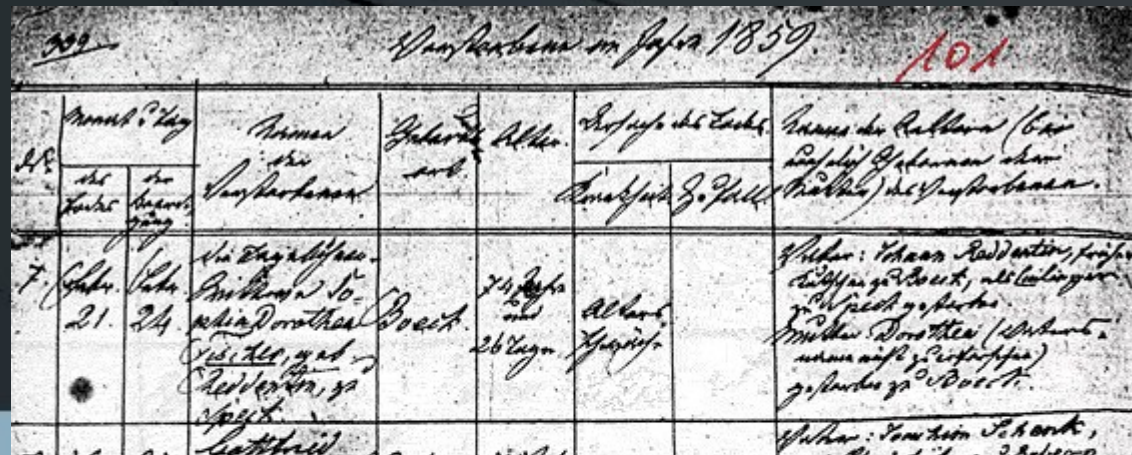 309
Verstorbene im Jahre 1859.
101
Nr.
Monat u. Tag
des
Todes
der
Beerdi-
gung
Namen
der
Verstorbenen
Geburts
ort.
Alter.
Ursache des Todes.
Krankheit
Zufall
Namen der Aeltern (bei
unehelich Geborenen der
Mutter) des Verstorbenen.
7.
Febr.
21.
Febr.
24.
die Tagelöhner-
Wittwe So-
phia Dorothea
Vischer, geb.
Reddentin, zu
Speck.
Boeck.
74 Jahr
und
26 Tage.
Alters
schwäche
Vater: Johann Reddentin, früher
zu Boeck, als Einlieger
zu Speck gestorben
Mutter: Dorothea (Vaters-
name nicht zu erforschen)
gestorben zu Boeck.
Gottfried
Vater: Joachim Schenk,